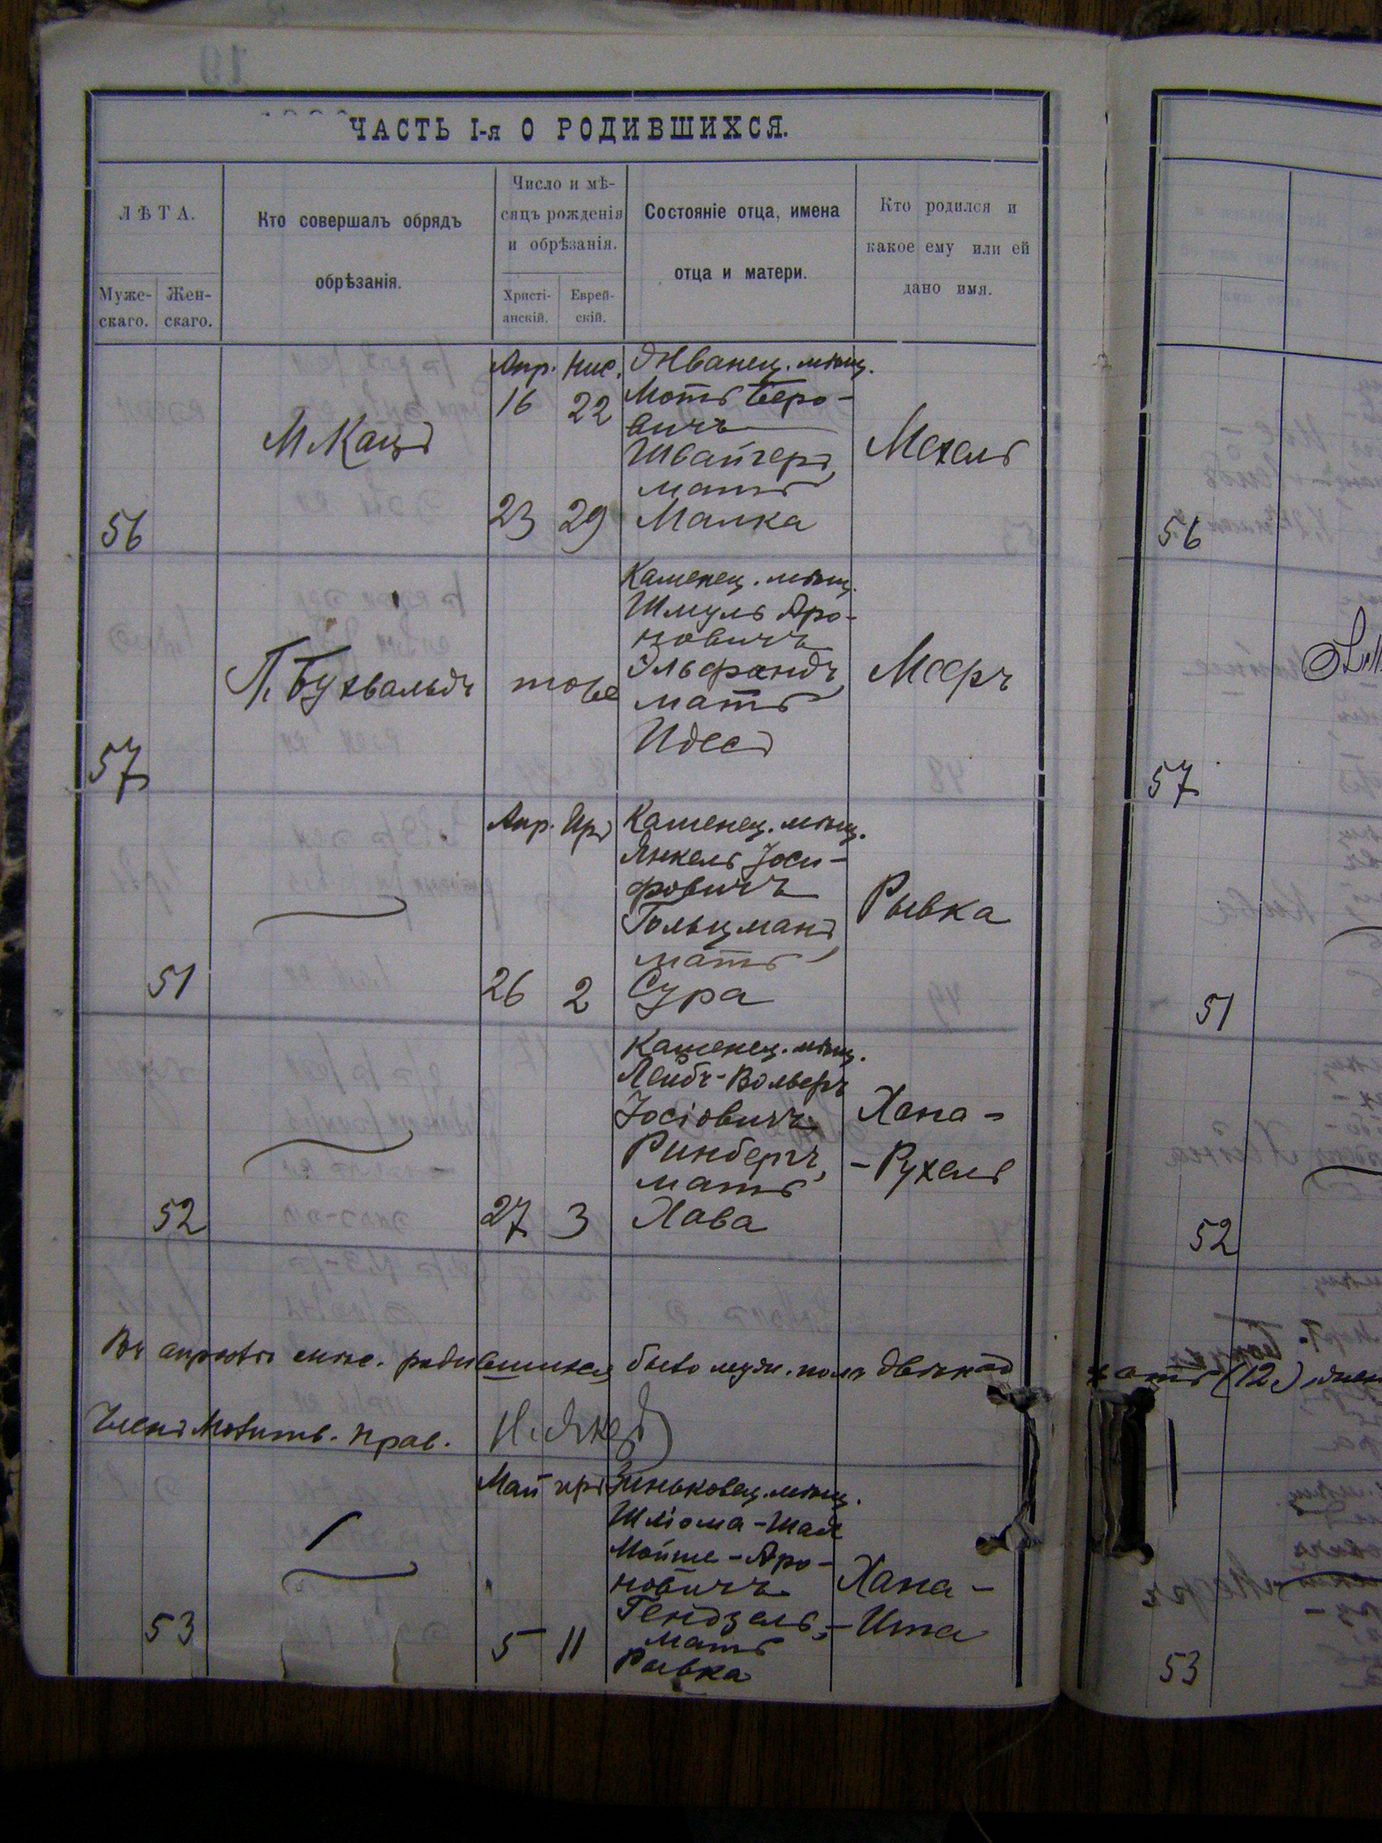 ЧАСТЬ I-я О РОДИВШИХСЯ.
ЛѢТА.
Муже-
скаго.
Жен-
скаго.
Кто совершалъ обрядъ
обрѣзанія.
Число и мѣ-
сяцъ рожденія
и обрѣзанія.
Христі-
анскій.
Еврей-
скій.
Состояніе отца, имена
отца и матери.
Кто родился и
какое ему или ей
дано имя.
56
М Кацъ
Апр. Нис.
16 22
23 29
Жванец. мѣщ.
Мотъ Беро-
вичъ
Швайгеръ,
мать
Малка
Мехель
57
П. Бухвальдъ
тоже
Каменец. мѣщ.
Шмуль Аро-
новичъ
Эльфандъ,
мать
Идесъ
Мееръ
51
Апр. Иръ
26 2
Каменец. мѣщ.
Янкель Іоси-
фовичъ
Гольцманъ,
мать
Сура
Рывка
52
27 3
Каменец. мѣщ.
Лейбъ-Вольфъ
Іосіовичъ
Ринбергъ,
мать
Хава
Хана-
-Рухель
Въ апрѣлѣ мѣс. родившихся было муж. пола двѣнад
цать (12)
Членъ Молитв. Прав.
53
Май иръ
5 11
Зиньковец. мѣщ.
Шліома-Шая
Мойше-Аро-
новичъ
Гендзель,
мать
Рывка
Хана-
-Ита
56
57
51
52
53